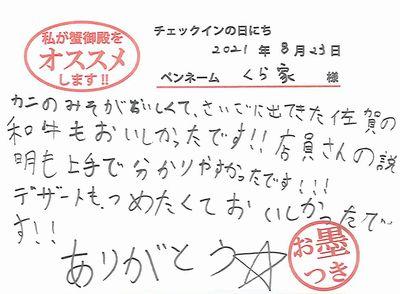 私が蟹御殿を
オススメ
します!!
チェックインの日にち
2021 年 8月23日
ペンネーム くら家 様
カニのみそがおいしくて、さいごに出てきた佐賀の
和牛もおいしかったです!!店員さんの説
明も上手で分かりやすかったです!!!
デザートも、つめたくておいしかったで
す!!
ありがとう☆
お墨
つき